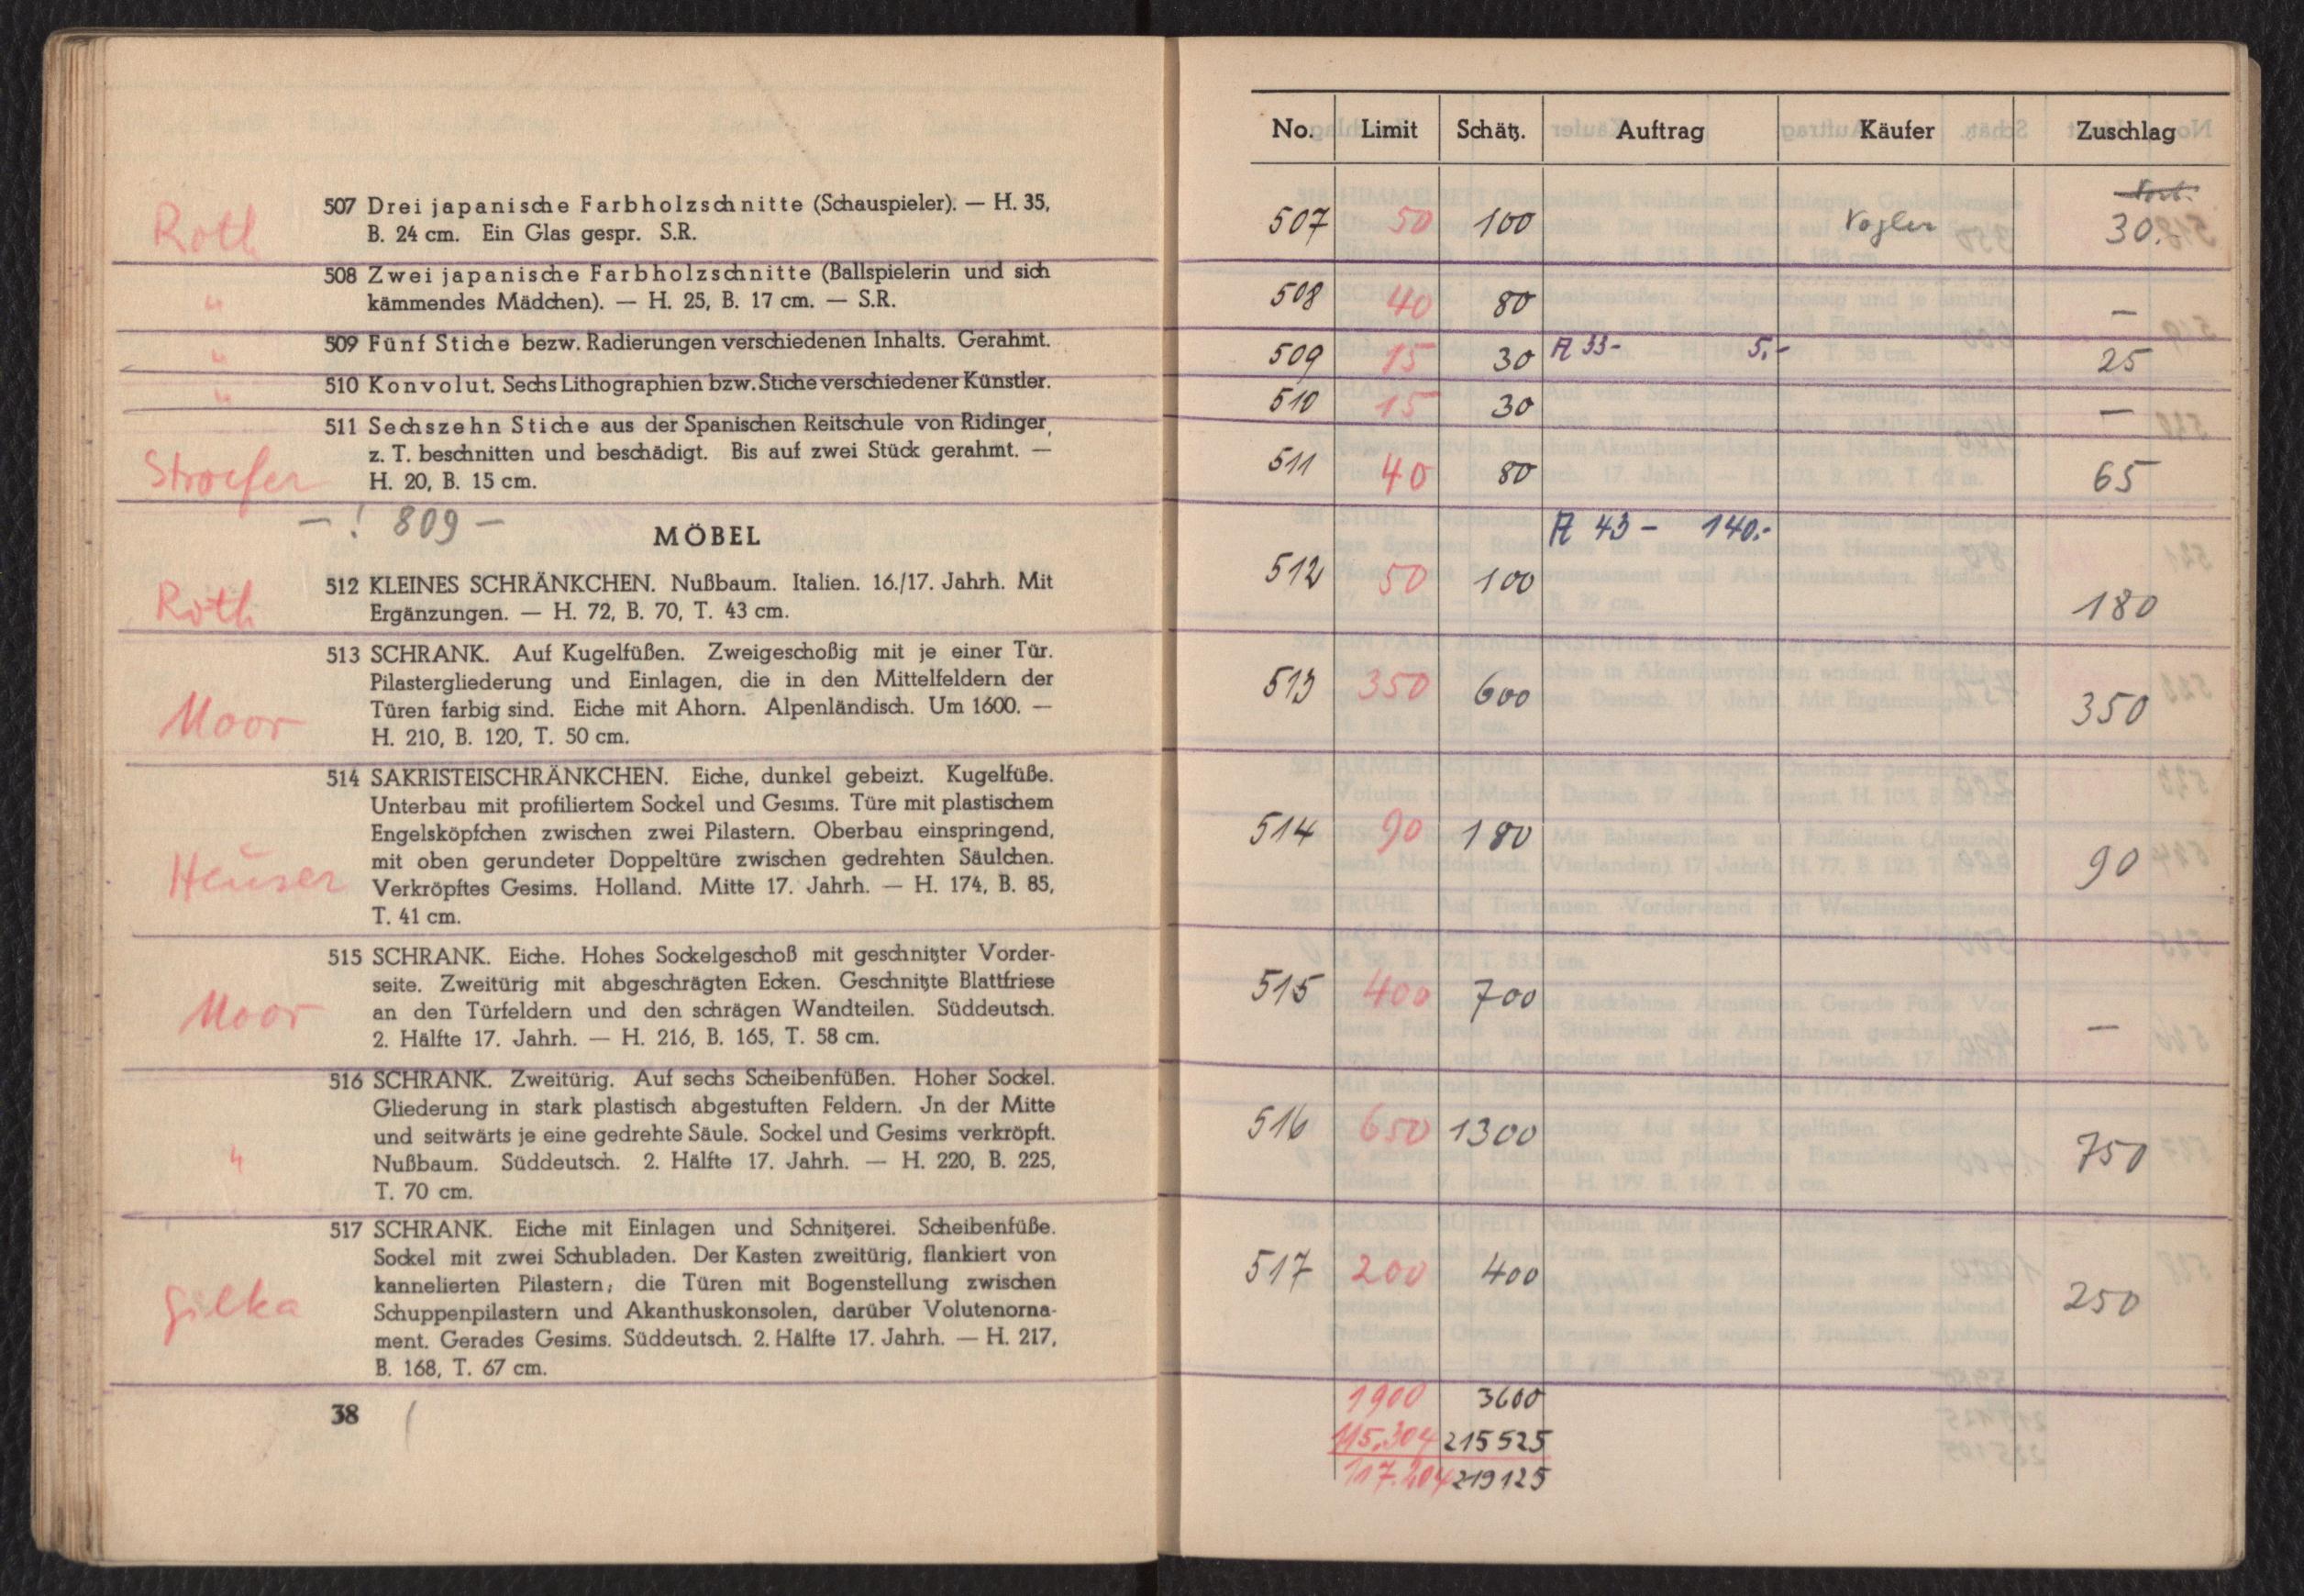 Roth
507 Drei japanische Farbholzschnitte (Schauspieler). — H. 35,
B. 24 cm. Ein Glas gespr. S.R.
"
508 Zwei japanische Farbholzschnitte (Ballspielerin und sich
kämmendes Mädchen). — H. 25, B. 17 cm. — S.R.
"
509 Fünf Stiche bezw. Radierungen verschiedenen Inhalts. Gerahmt.
"
510 Konvolut. Sechs Lithographien bzw. Stiche verschiedener Künstler.
Stroefer
511 Sechszehn Stiche aus der Spanischen Reitschule von Ridinger,
z. T. beschnitten und beschädigt. Bis auf zwei Stück gerahmt. —
H. 20, B. 15 cm.
— ! 809 —
MÖBEL
Roth
512 KLEINES SCHRÄNKCHEN. Nußbaum. Italien. 16./17. Jahrh. Mit
Ergänzungen. — H. 72, B. 70, T. 43 cm.
Moor
513 SCHRANK. Auf Kugelfüßen. Zweigeschoßig mit je einer Tür.
Pilastergliederung und Einlagen, die in den Mittelfeldern der
Türen farbig sind. Eiche mit Ahorn. Alpenländisch. Um 1600. —
H. 210, B. 120, T. 50 cm.
Heuser
514 SAKRISTEISCHRÄNKCHEN. Eiche, dunkel gebeizt. Kugelfüße.
Unterbau mit profiliertem Sockel und Gesims. Türe mit plastischem
Engelsköpfchen zwischen zwei Pilastern. Oberbau einspringend,
mit oben gerundeter Doppeltüre zwischen gedrehten Säulchen.
Verkröpftes Gesims. Holland. Mitte 17. Jahrh. — H. 174, B. 85,
T. 41 cm.
Moor
515 SCHRANK. Eiche. Hohes Sockelgeschoß mit geschnitzter Vorder-
seite. Zweitürig mit abgeschrägten Ecken. Geschnitzte Blattfriese
an den Türfeldern und den schrägen Wandteilen. Süddeutsch.
2. Hälfte 17. Jahrh. — H. 216, B. 165, T. 58 cm.
"
516 SCHRANK. Zweitürig. Auf sechs Scheibenfüßen. Hoher Sockel.
Gliederung in stark plastisch abgestuften Feldern. Jn der Mitte
und seitwärts je eine gedrehte Säule. Sockel und Gesims verkröpft.
Nußbaum. Süddeutsch. 2. Hälfte 17. Jahrh. — H. 220, B. 225,
T. 70 cm.
Gilka
517 SCHRANK. Eiche mit Einlagen und Schnitzerei. Scheibenfüße.
Sockel mit zwei Schubladen. Der Kasten zweitürig, flankiert von
kannelierten Pilastern; die Türen mit Bogenstellung zwischen
Schuppenpilastern und Akanthuskonsolen, darüber Volutenorna-
ment. Gerades Gesims. Süddeutsch. 2. Hälfte 17. Jahrh. — H. 217,
B. 168, T. 67 cm.
38
No. Limit Schätz. Auftrag Käufer Zuschlag
507 50 100 Vogler 30.
508 40 80 —
509 15 30 A 33- 5.- 25
510 15 30 —
511 40 80 65
A 43 - 140.-
512 50 100 180
513 350 600 350
514 90 180 90
515 400 700 —
516 650 1300 750
517 200 400 250
1900 3600
115.304 215525
117.204 219125